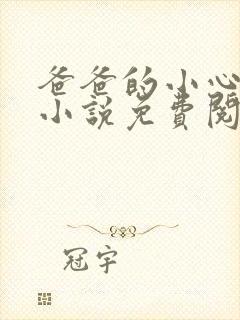 爸爸的小心
小說免費閱
冠宇